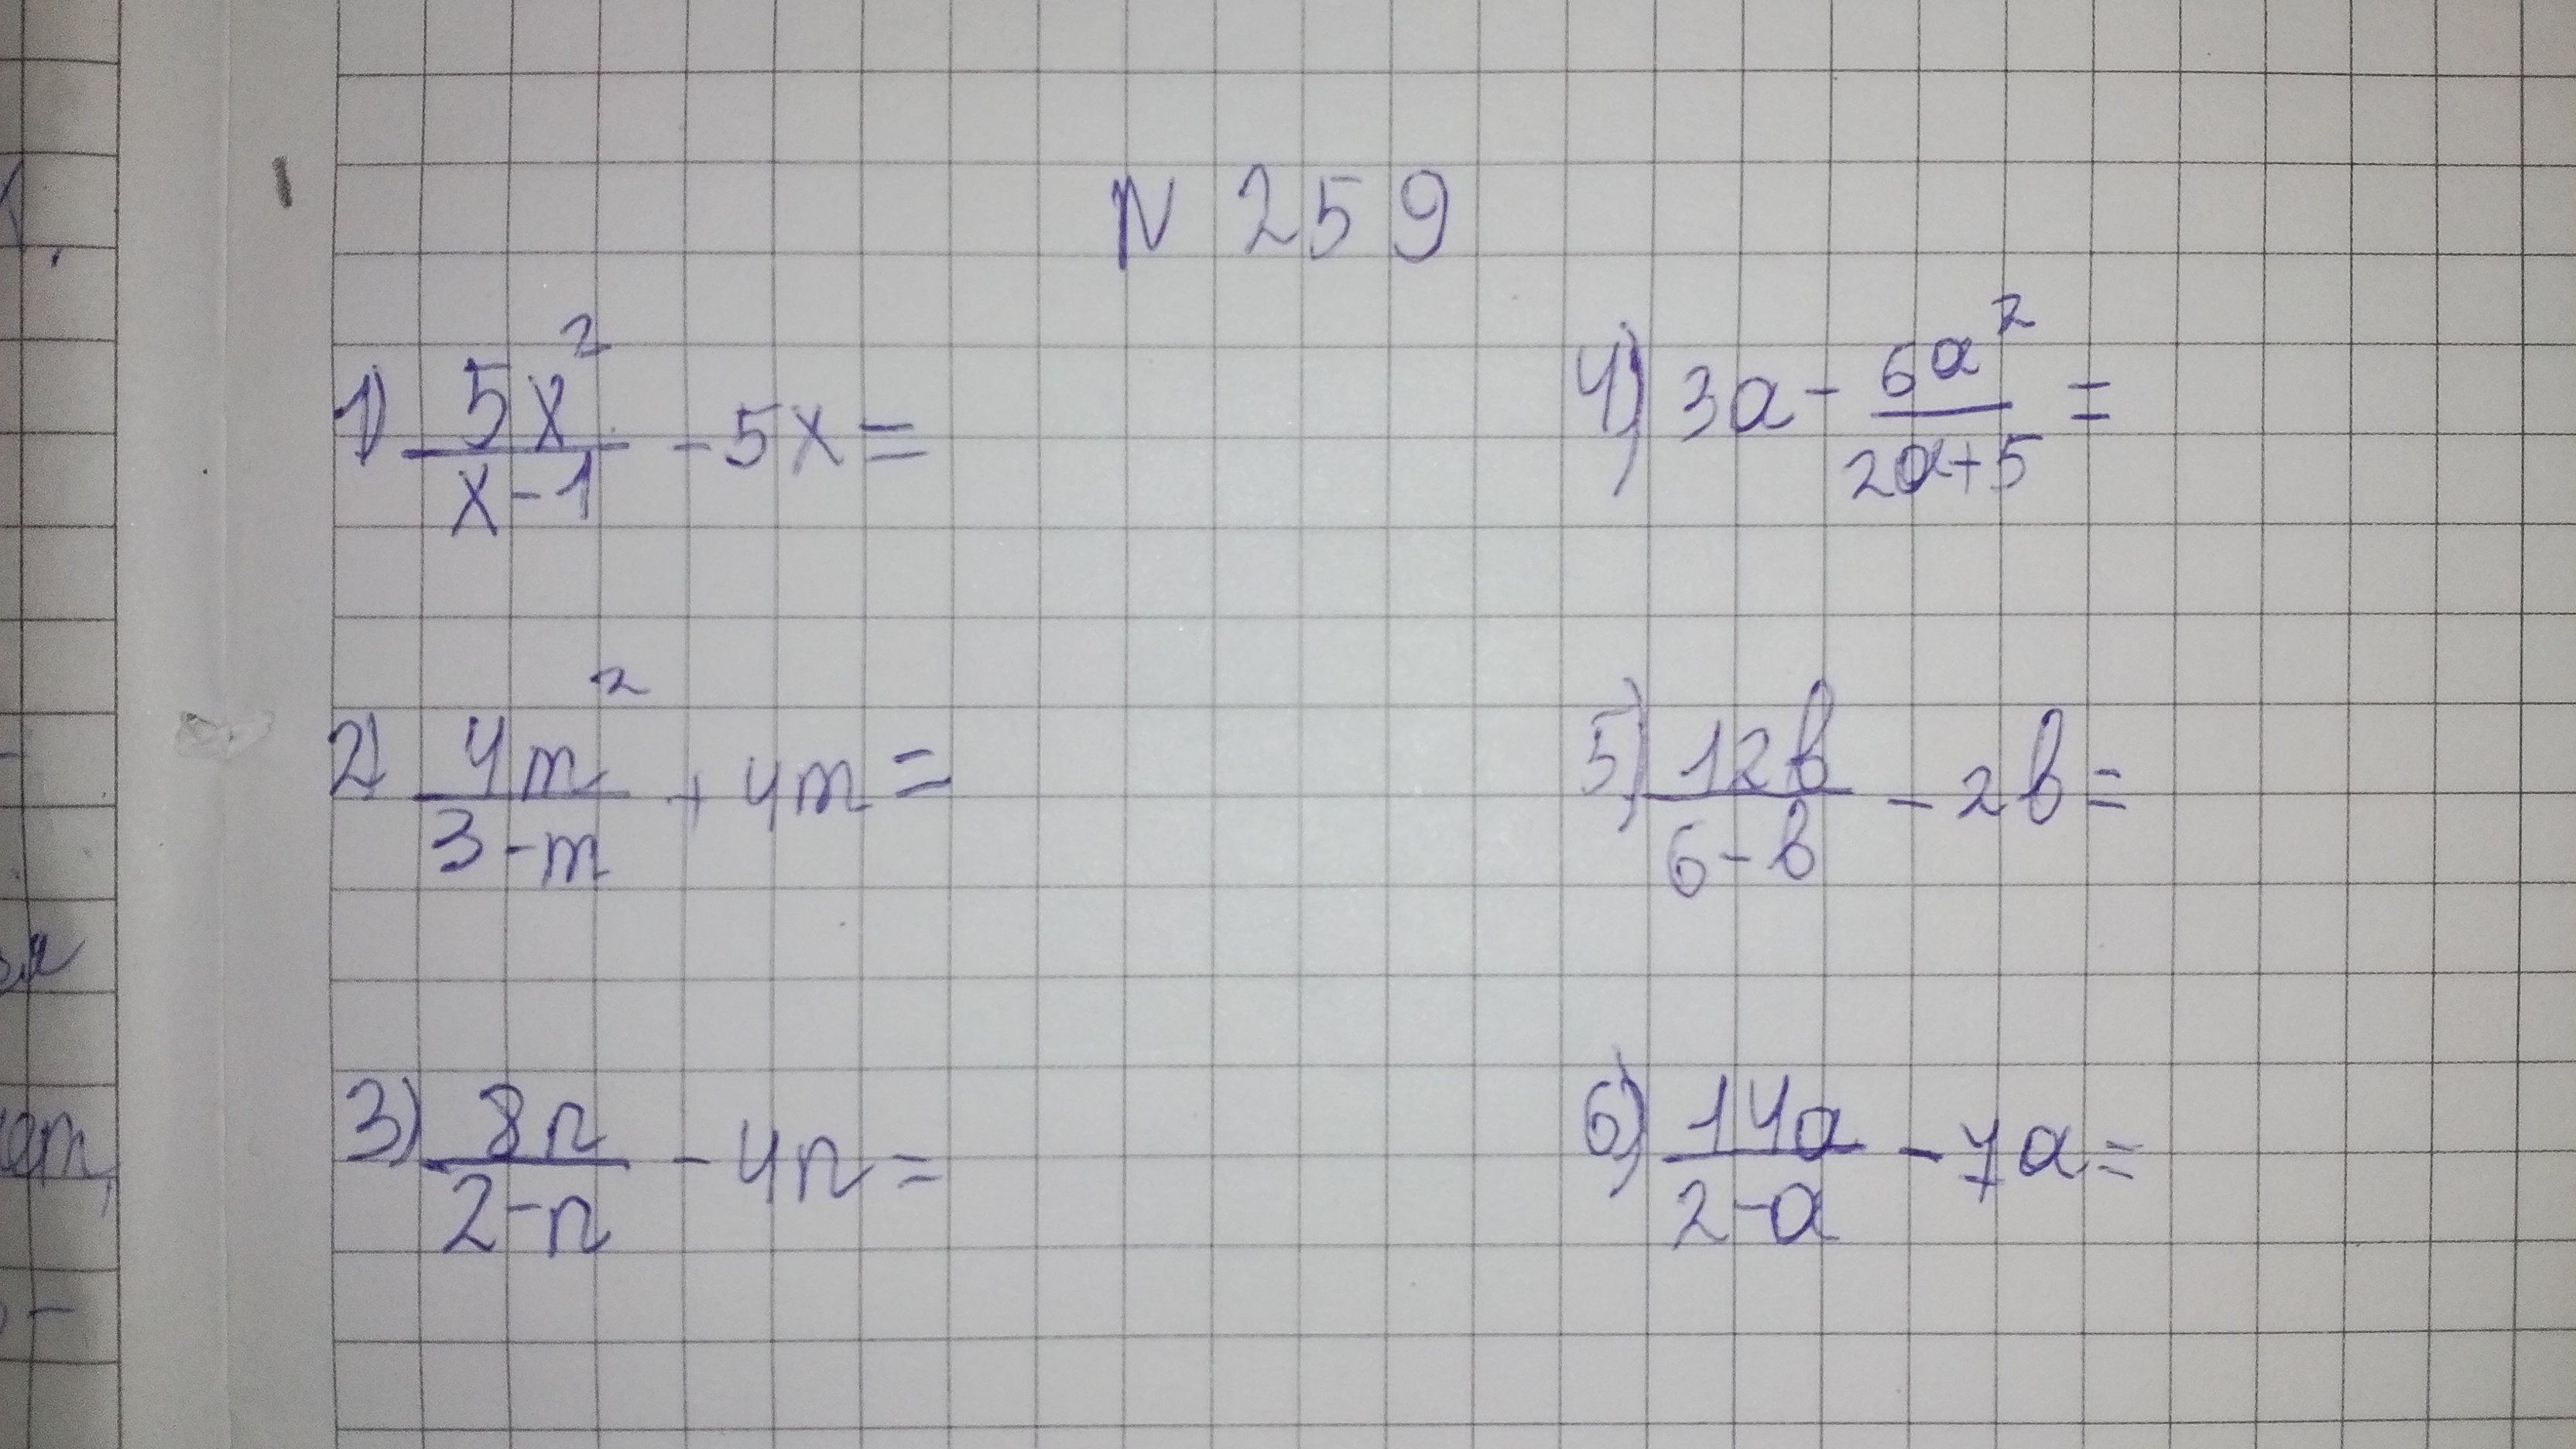 N 259
1) 5x²/(x-1) - 5x =
2) 4m²/(3-m) + 4m =
3) 8n/(2-n) - 4n =
4) 3a - 6a²/(2a+5) =
5) 12b/(6-b) - 2b =
6) 14a/(2-a) - 7a =